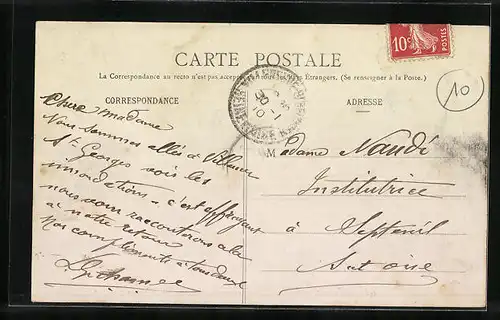 CARTE POSTALE
La Correspondance au recto n'est pas acceptée par tous les Etrangers. (Se renseigner à la Poste.)
CORRESPONDANCE
ADRESSE
10c
POSTES
10
Chere Madame
Nous sommes allés à Villeneuve
St Georges voir les
inondations - c'est effrayant
nous vous raconterons cela
à notre retour
Nos compliments à
Madame Naudé
Institutrice
à Septeuil
Set Oise